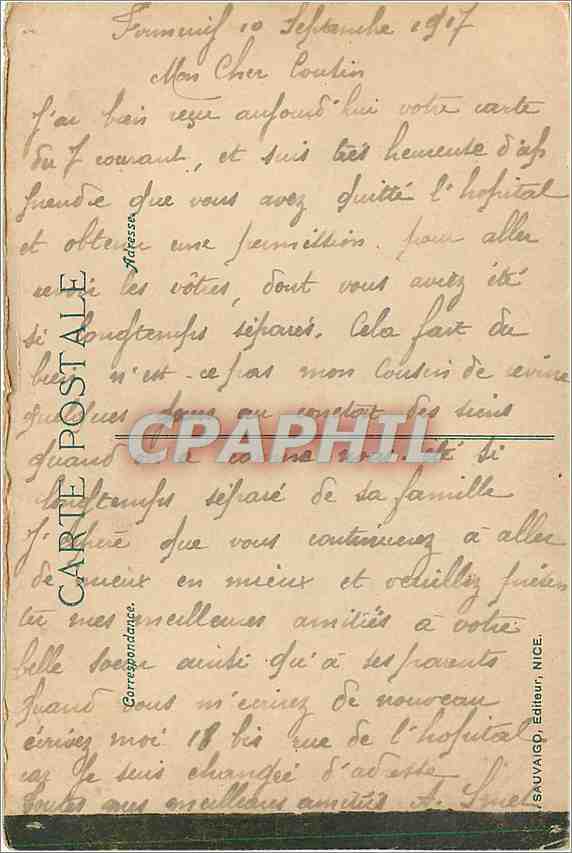 10 Septembre 1917
Mon Cher Cousin
J'ai bien reçu aujourd'hui votre carte
du 7 courant, et suis très heureuse d'ap
prendre que vous avez quitté l'hopital
et obtenu une permission pour aller
revoir les vôtres, dont vous aviez été
si longtemps séparés. Cela fait du
bien n'est-ce pas mon Cousin de
quelques jours au des siens
quand comme été si
longtemps séparé de sa famille
J' que vous continuerez à aller
de mieux en mieux et veuillez présen
ter mes meilleures amitiés à votre
belle soeur ainsi qu'à ses parents
Quand vous m'écrirez de nouveau
écrivez moi 18 bis rue de l'hopital
car je suis changée d'adresse
Toutes mes meilleures amitiés A.
CARTE POSTALE
Adresse.
Correspondance.
SAUVAIGO, Éditeur, NICE.
CPAPHIL